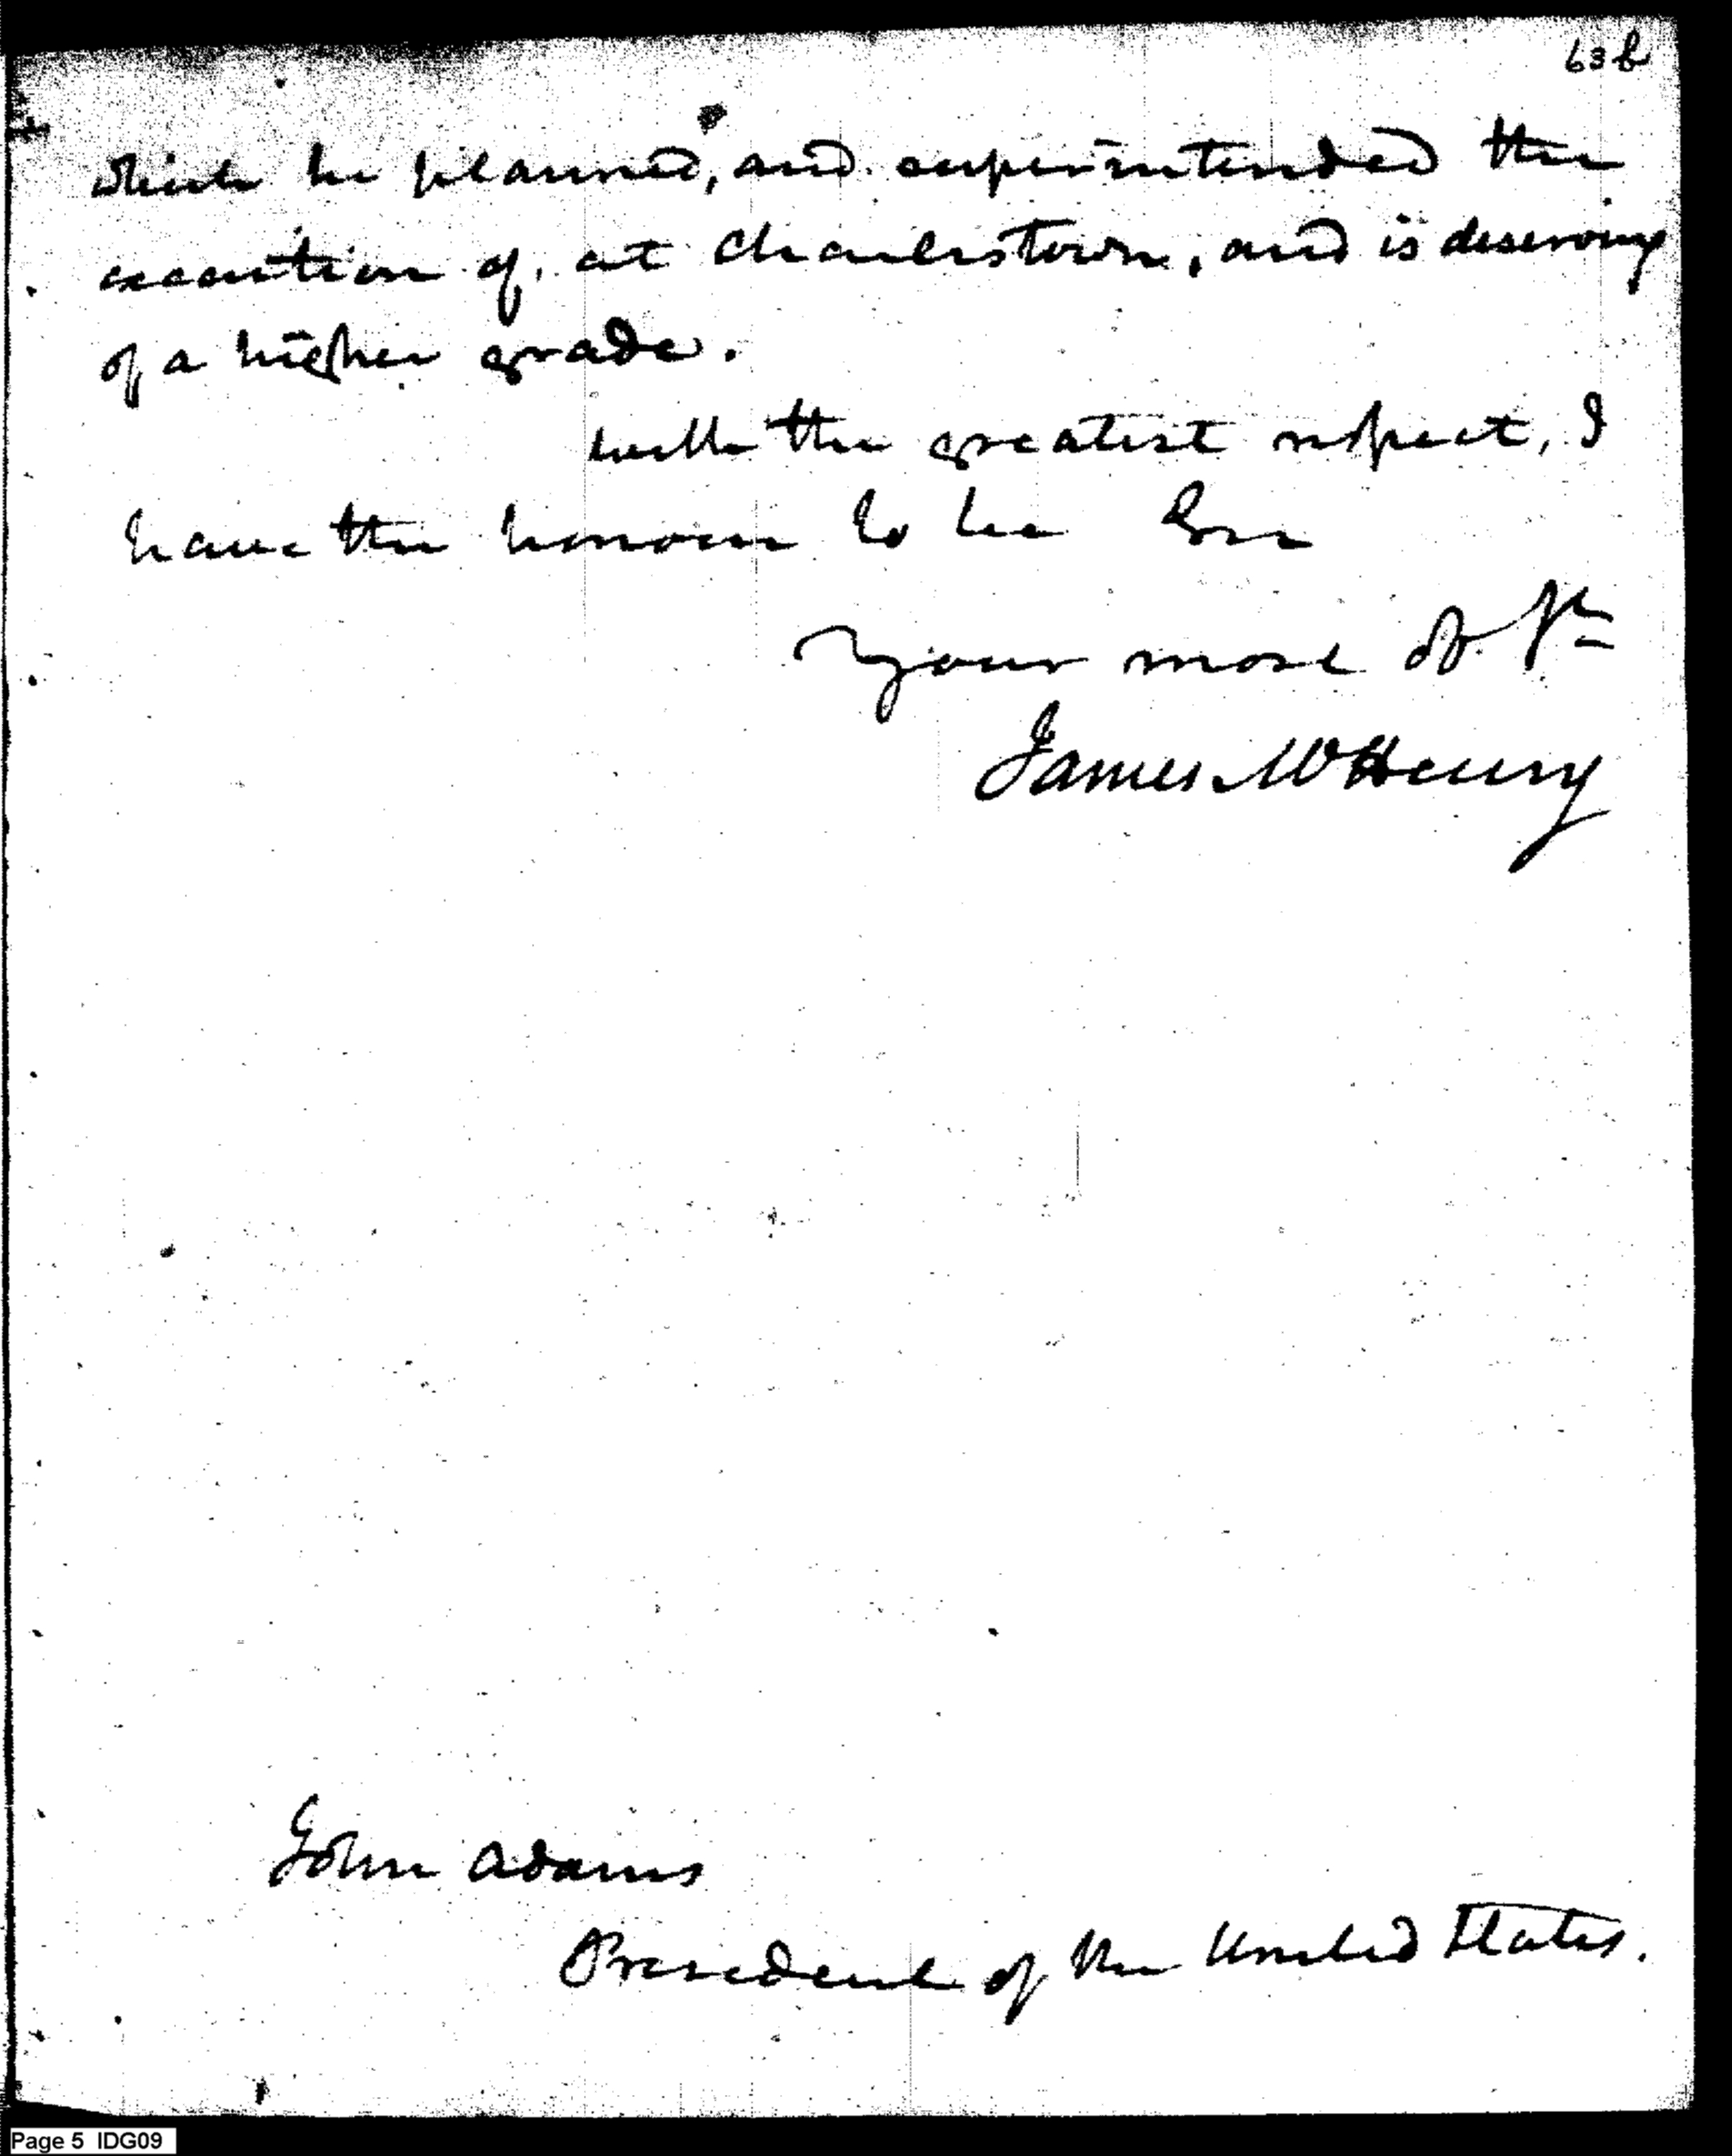 63b
which he planned, and superintended the
execution of, at Charlestown, and is deserving
of a higher grade.
with the greatest respect, I
have the honour to be Sir
Your most ob. St
James McHenry
John Adams
President of the United States.
Page 5 IDG09